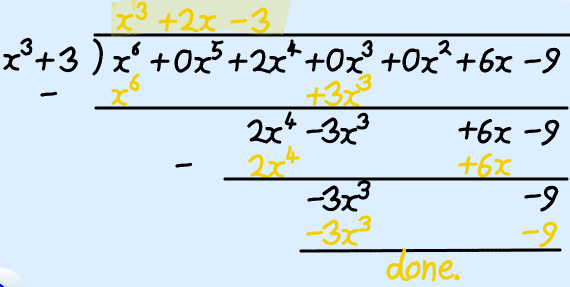 x³ +2x -3
x³+3 ) x⁶ +0x⁵ +2x⁴ +0x³ +0x² +6x -9
- x⁶ +3x³
2x⁴ -3x³ +6x -9
- 2x⁴ +6x
-3x³ -9
-3x³ -9
done.